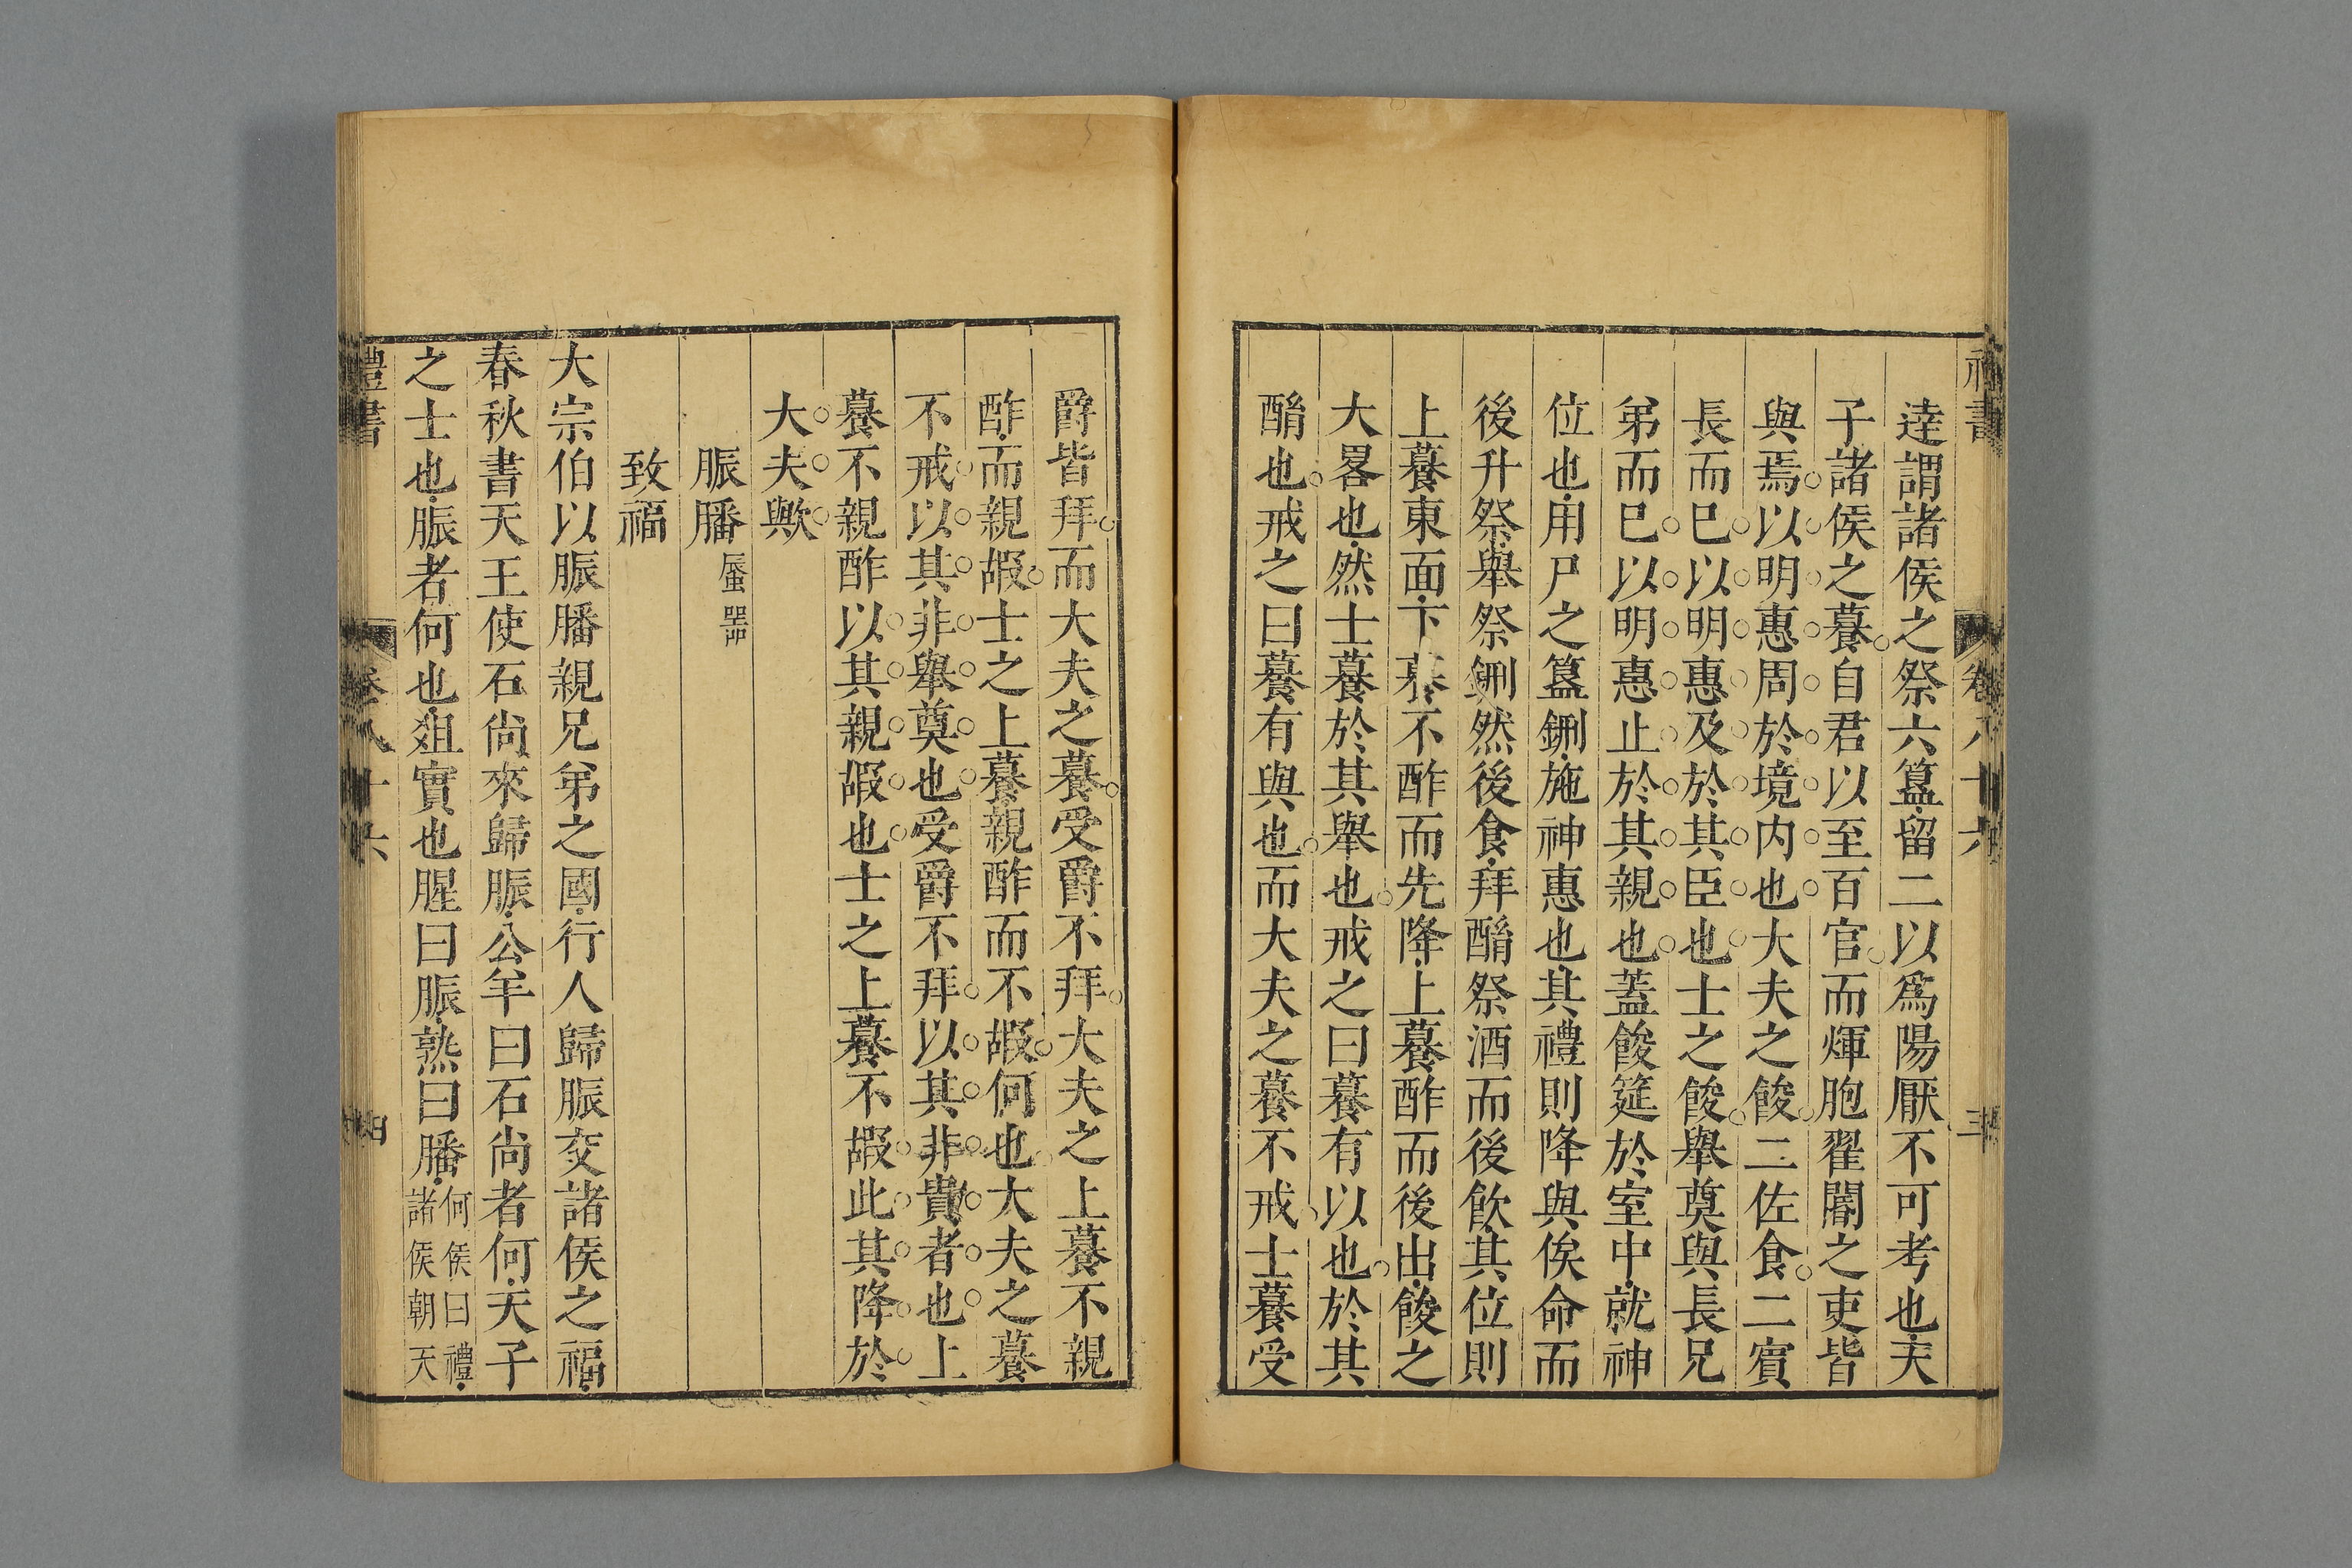 禮書 卷八十六 三
逹謂諸侯之祭六簋留二以爲陽厭不可考也天
子諸侯之䭆自君以至百官而煇胞翟閽之吏皆
與焉以明惠周於境内也大夫之餕二佐食二賔
長而巳以明惠及於其臣也士之餕舉奠與長兄
弟而巳以明惠止於其親也蓋餕筵於室中就神
位也用尸之簋鉶施神惠也其禮則降與俟命而
後升祭舉祭鉶然後食拜酳祭酒而後飲其位則
上䭆東面下䭆不酢而先降上䭆酢而後出餕之
大畧也然士䭆於其舉也戒之曰䭆有以也於其
酳也戒之曰䭆有與也而大夫之䭆不戒士䭆受
爵皆拜而大夫之䭆受爵不拜大夫之上䭆不親
酢而親嘏士之上䭆親酢而不嘏何也大夫之䭆
不戒以其非舉奠也受爵不拜以其非貴者也上
䭆不親酢以其親嘏也士之上䭆不嘏此其降於
大夫歟
脤膰 蜃
致福
大宗伯以脤膰親兄弟之國行人歸脤交諸侯之福
春秋書天王使石尚來歸脤公羊曰石尚者何天子
之士也脤者何也俎實也腥曰脤熟曰膰 何侯曰禮
諸侯朝天
禮書 卷八十六 四